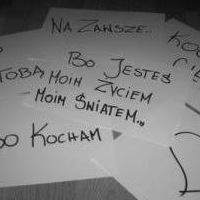 NA ZAWSZE..
BO JESTEŚ
TOBĄ MOIM ŻYCIEM
MOIM ŚWIATEM..
BO KOCHAM